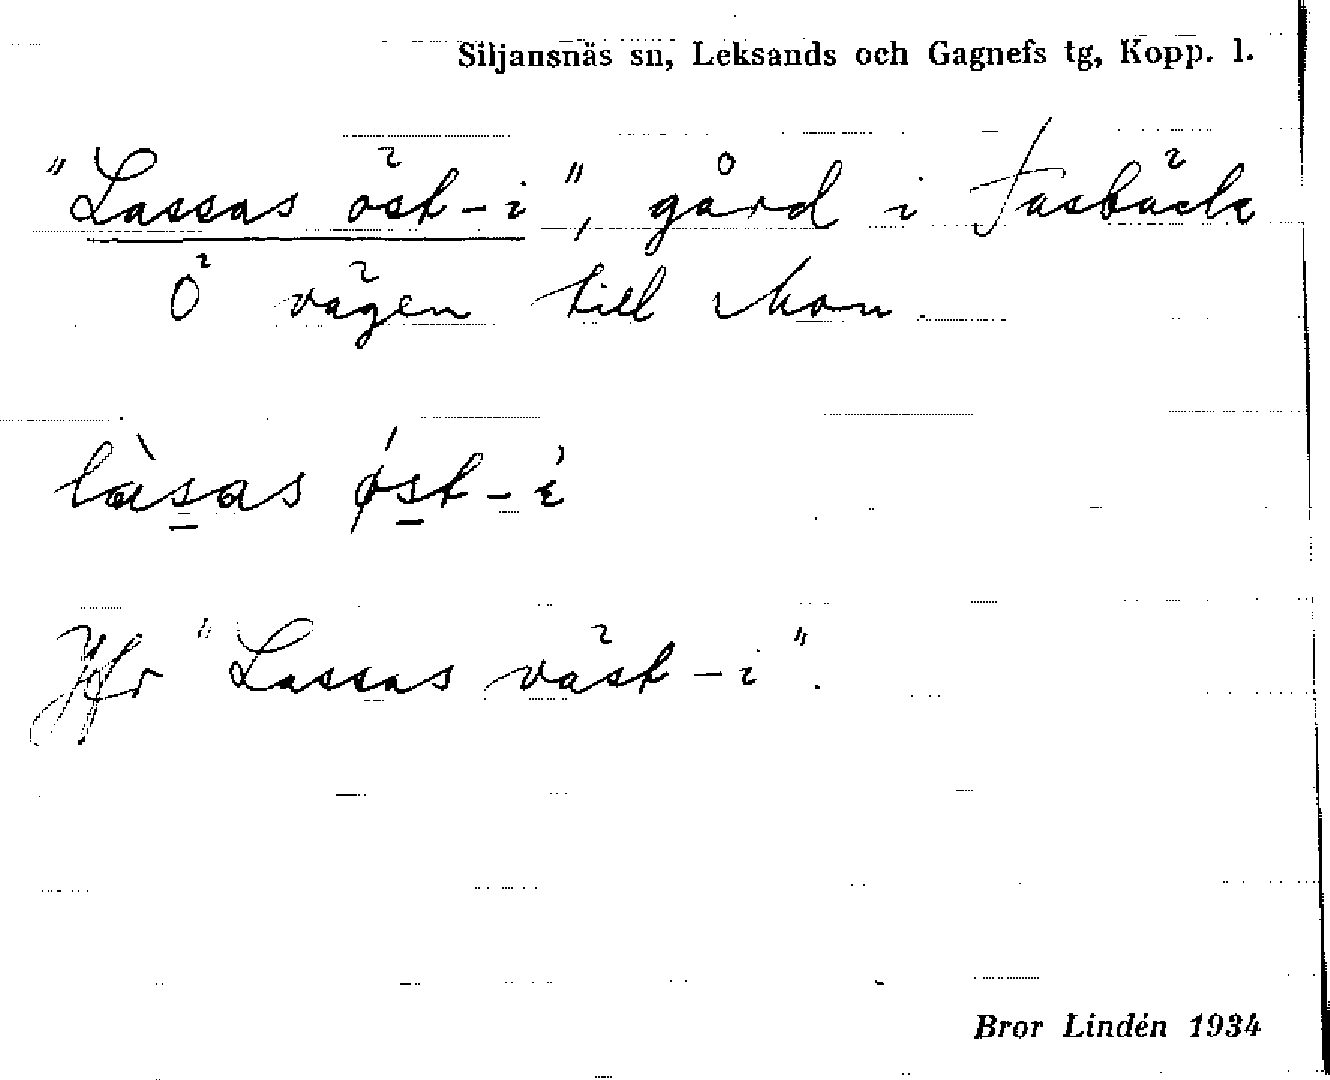 Siljansnäs sn, Leksands och Gagnefs tg, Kopp. l.
"Lassas öst-i", gård i Fasbäck
Ö vägen till Mon.
làsas øst-i
Jfr "Lassas väst-i".
Bror Lindén 1934